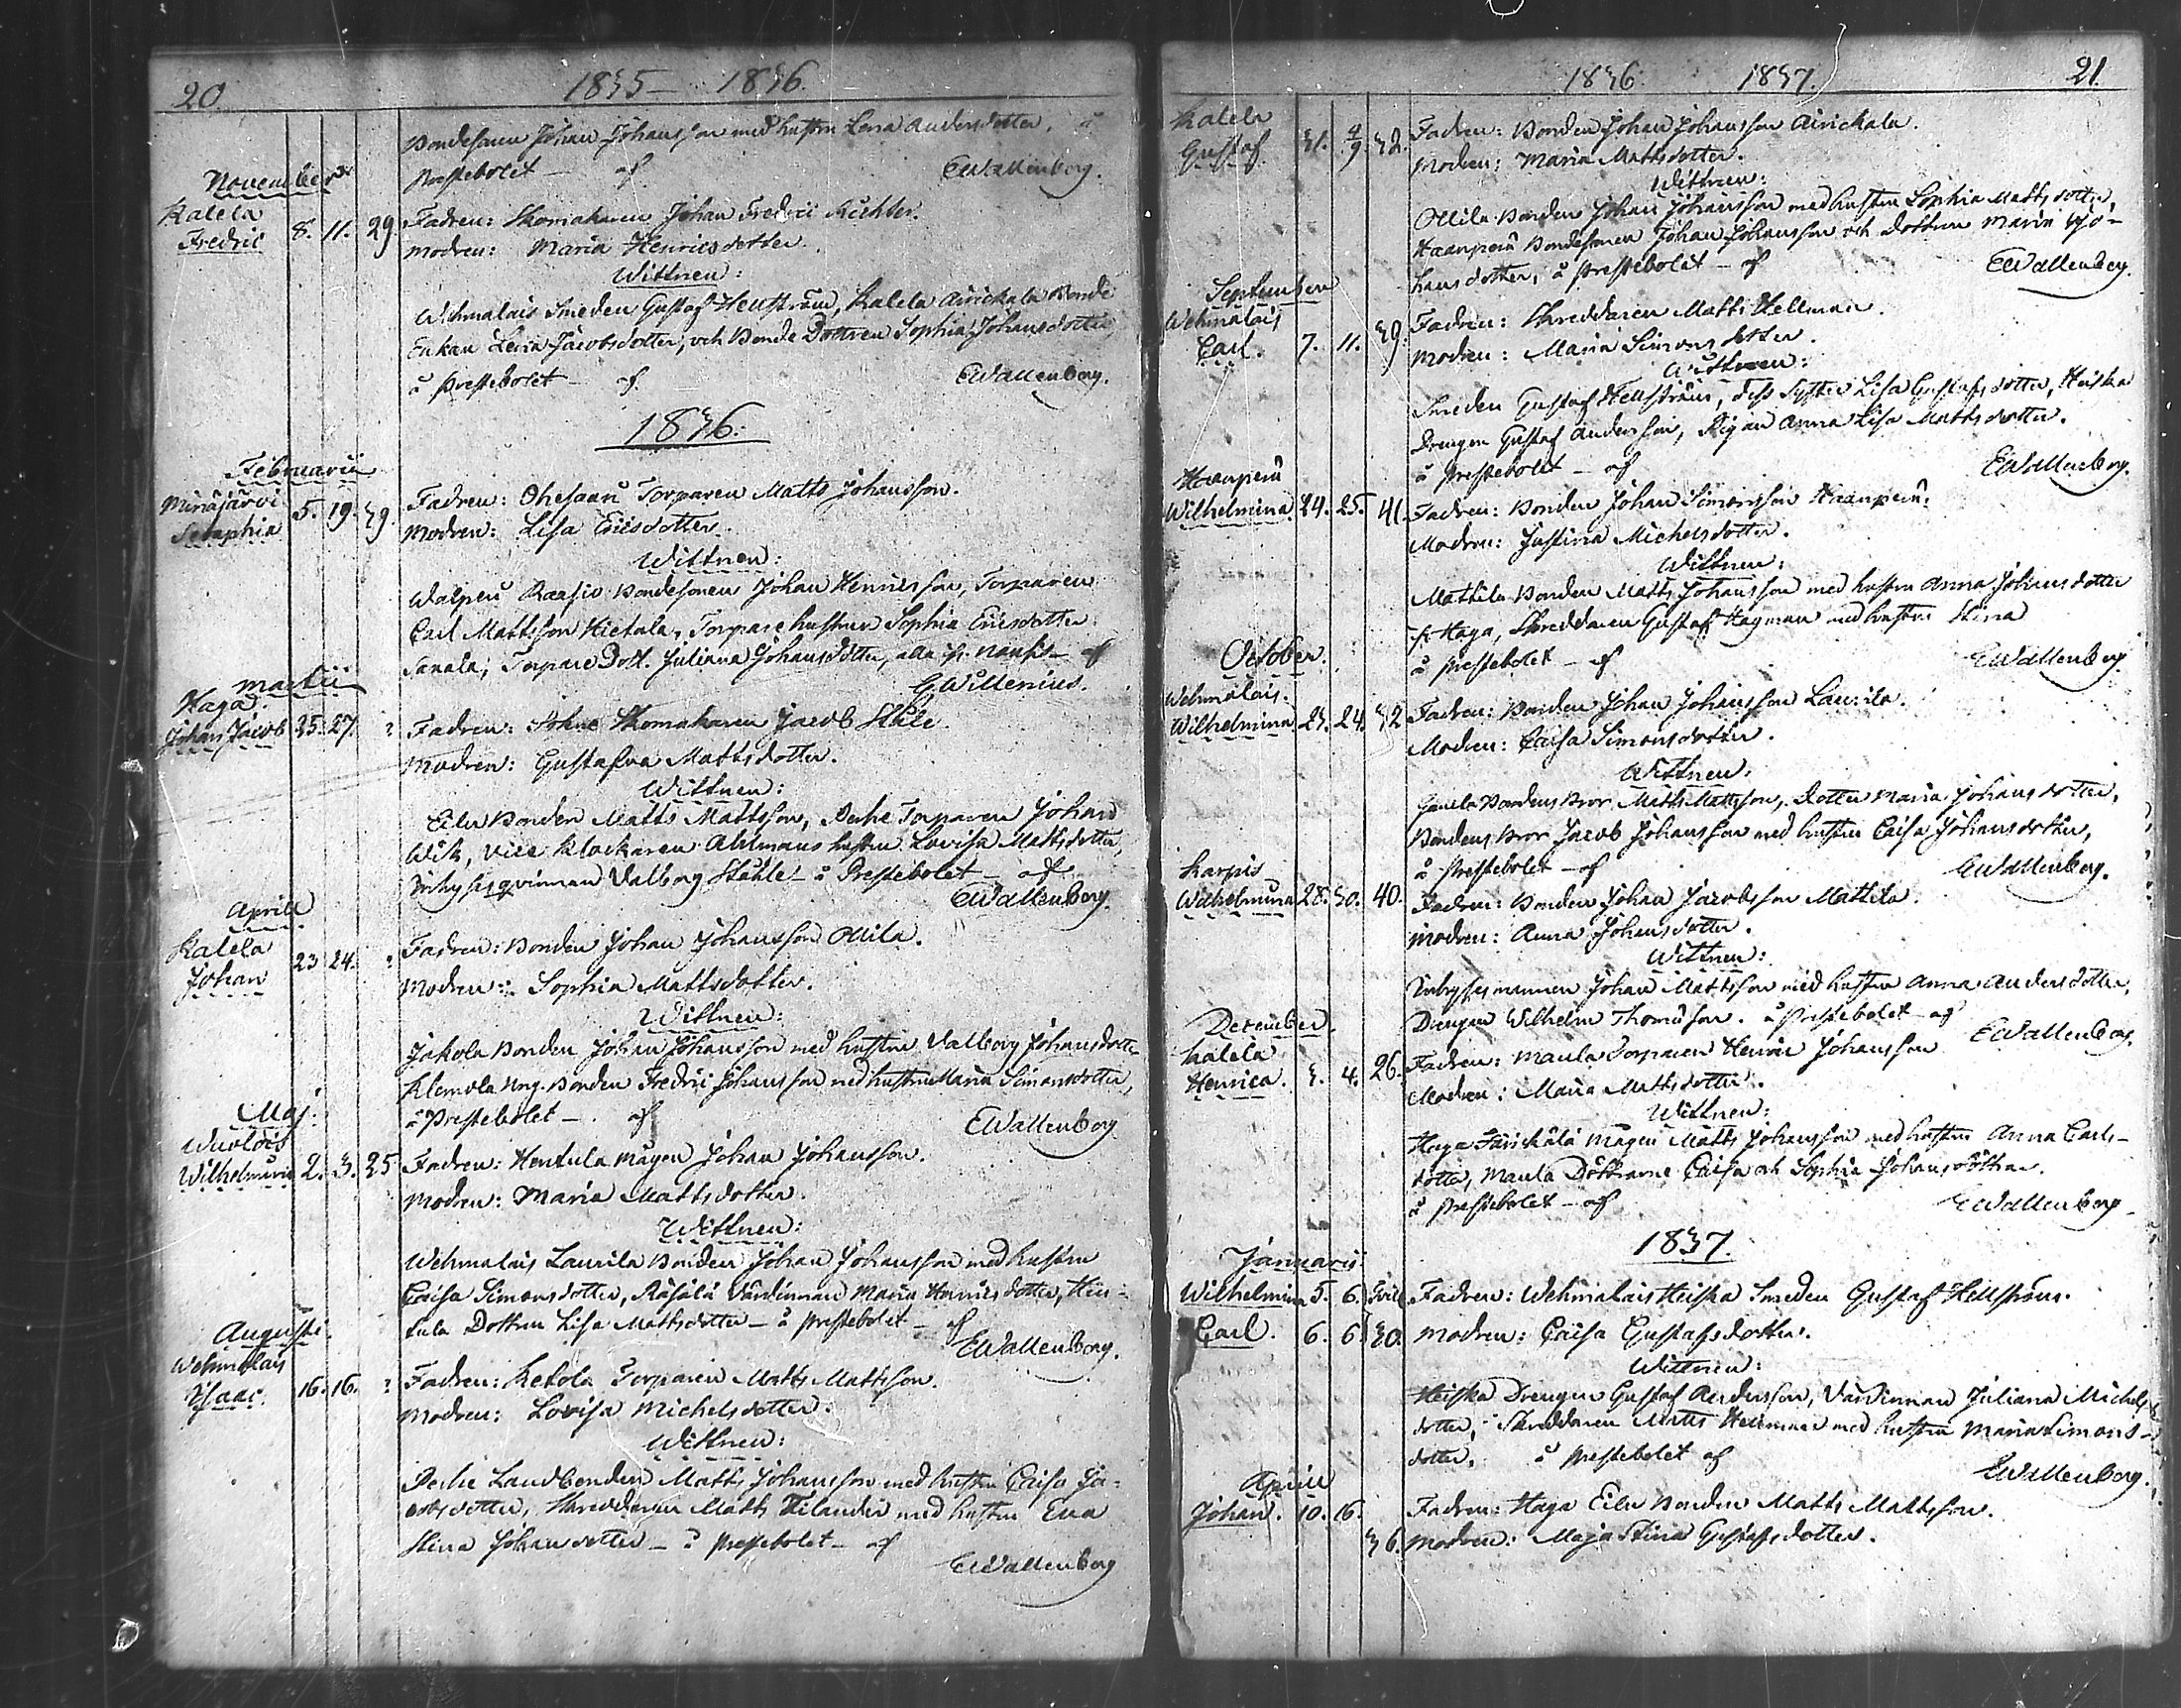 20.
1835 — 1836.
Bondesonen Johan Johansson med hustru Lena Andersdotter, å
Prestebolet — af
EWallenberg.
November
Kalela
Fredric 8. 11. 29
Fadren: Skomakaren Johan Fredric Richter.
Modren: Maria Henricsdotter.
Wittnen:
Wehmalais Smeden Gustaf Hellström, Kalela Airickala Bonde
Enkan Lena Jacobsdotter, och Bonde Dottren Sophia Johansdotter
å Prestebolet — af
EWallenberg.
1836:
Februarii
Miräjärvi
Seraphia 5. 19. 39.
Fadren: Ohesaari Torparen Matts Johansson.
Modren: Lisa Ericsdotter.
Wittnen:
Walperi Raasio Bondesonen Johan Henricsson, Torparen
Carl Mattsson Hietala, Torpare hustrun Sophia Ericsdotter
Tanala, Torpare Dott. Juliana Johansdotter, alla fr. Nousis — af
G Willenius.
Martii
Haga.
Johan Jacob 25. 27. ?
Fadren: Sokne Skomakaren Jacob Ståle
Modren: Gustafva Mattsdotter.
Wittnen:
Eilu Bonden Matts Mattsson, Perhe Torparen Johan
Wik, Vice Klockaren Ahlmans hustru Lovisa Mattsdotter,
Inhysesqvinnan Valborg Ståhle — å Prestebolet — af
EWallenberg.
Aprill
Kalela
Johan 23 24. ?
Fadren: Bonden Johan Johansson Ollila.
Modren: Sophia Mattsdotter.
Wittnen:
Jakola Bonden Johan Johansson med hustru Valborg Johansdotter
Klemola Ung. Bonden Fredric Johansson med hustru Maria Simonsdotter,
å Prestebolet — af
EWallenberg
Maj.
Wuolois
Wilhelmina 2. 3. 25
Fadren: Hentula mågen Johan Johansson.
Modren: Maria Mattsdotter.
Wittnen:
Wehmalais Laurila Bonden Johan Johansson med hustru
Caisa Simonsdotter, Räsälä Värdinnan Maria Henricsdotter, Hen-
tula Dottren Lisa Mattsdotter — å Prestebolet — af
EWallenberg.
Augusti.
Wehmalais
Isaac. 16. 16. ?
Fadren: Ketola Torparen Matts Mattsson.
Modren: Lovisa Michelsdotter.
Wittnen:
Perhe Landbonden Matts Johansson med hustru Caisa Ja-
cobsdotter, Skreddaren Matts Kilander med hustru Eva
Stina Johansdotter — å Prestebolet — af
EWallenberg
1836. 1837.
21.
Kalela
Gustaf 31. 4/9 32.
Fadren: Bonden Johan Johansson Airickala.
Modren: Maria Mattsdotter.
Wittnen:
Ollila Bonden Johan Johansson med hustru Sophia Mattsdotter,
Haanperä Bondesonen Johan Johansson och dottren Maria Jo-
hansdotter, å Prestebolet — af
EWallenberg.
September
Wehmalais
Carl. 7. 11. 39.
Fadren: Skreddaren Matts Hellman.
Modren: Maria Simonsdotter.
Wittnen:
Smeden Gustaf Hellström, dess Syster Lisa Gustafsdotter, Heiska
Drengen Gustaf Andersson, Pigan Anna Lisa Mattsdotter.
å Prestebolet — af
EWallenberg.
Haanperä
Wilhelmina 24. 25. 41.
Fadren: Bonden Johan Simonsson Haanperä.
Modren: Justina Michelsdotter.
Wittnen:
Mattila Bonden Matts Johansson med hustru Anna Johansdotter
fr. Haga, Skreddaren Gustaf Hagman med hustru Stina
å Prestebolet — af
EWallenberg
October.
Wehmalais.
Wilhelmina 23. 24. 32
Fadren: Bonden Johan Johansson Laurila.
Modren: Caisa Simonsdotter.
Wittnen:
Bondens Bror Matts Mattsson, Dotter Maria Johansdotter,
Bondens Bror Jacob Johansson med hustru Caisa Johansdotter,
å Prestebolet — af
EWallenberg.
Karpis
Wilhelmina 28. 30. 40.
Fadren: Bonden Johan Jacobsson Mattila.
Modren: Anna Johansdotter.
Wittnen:
Inhysesmannen Johan Mattsson med hustru Anna Andersdotter,
Drengen Wilhelm Thomasson. å Prestebolet — af
EWallenberg.
December.
Kalela
Henrica. 3. 4. 26.
Fadren: Maula Torparen Henric Johansson
Modren: Maria Mattsdotter.
Wittnen:
Haga Färickälä Mågen Matts Johansson med hustru Anna Carls-
dotter, Maula Döttrarne Caisa och Sophia Johansdöttrar.
å Prestebolet — af
EWallenberg
1837.
Januarii
Wilhelmina 5. 6. Tvill.
Carl. 6. 6. 30.
Fadren: Wehmalais Heiska Smeden Gustaf Hellström.
Modren: Caisa Gustafsdotter.
Wittnen:
Heiska Drengen Gustaf Andersson, Värdinnan Juliana Michels-
dotter, Skreddaren Matts Hellman med hustru Maria Simons-
dotter, å Prestebolet af
EWallenberg.
Aprill
Johan. 10. 16. 36.
Fadren: Haga Eilu Bonden Matts Mattsson.
Modren: Maja Stina Gustafsdotter.